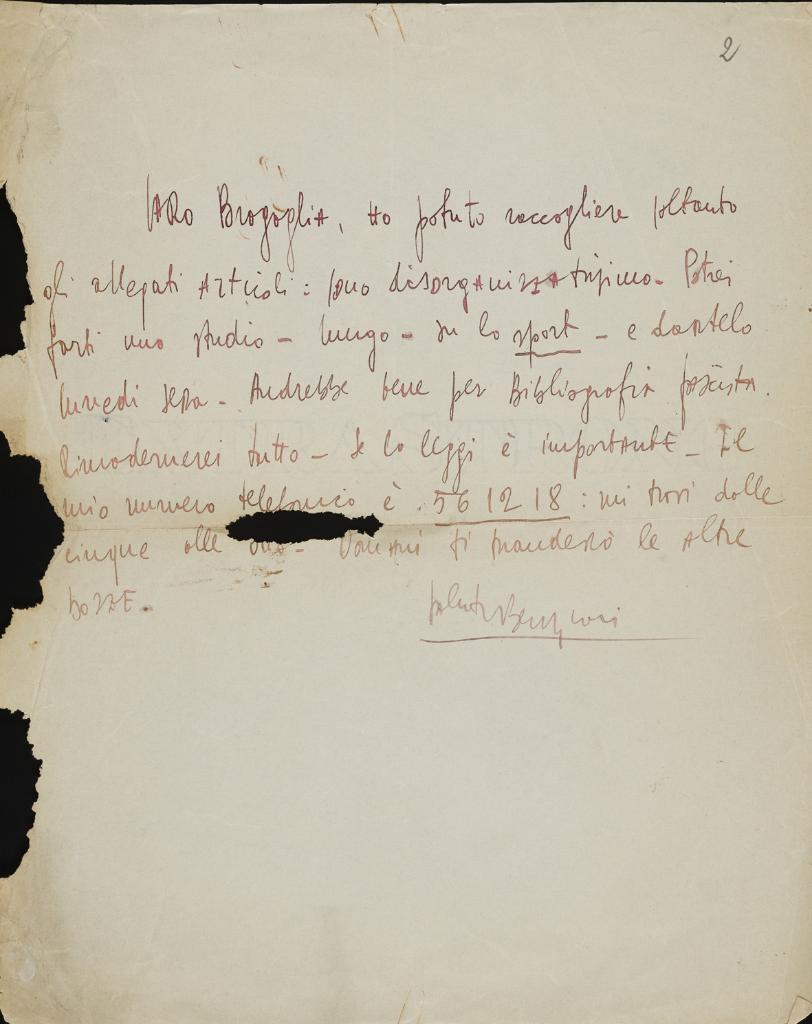 2
CARO Bragaglia, Ho potuto raccogliere soltanto
gli allegati articoli: sono disorganizzatissimo. Potrei
farti uno studio - lungo - su lo sport - e dartelo
lunedi sera - Andrebbe bene per Bibliografia fascista.
Rimodernerei tutto - Se lo leggi è importante - Il
mio numero telefonico è . 561218 : mi trovi dalle
cinque alle - Domani ti manderò le altre
bozze.